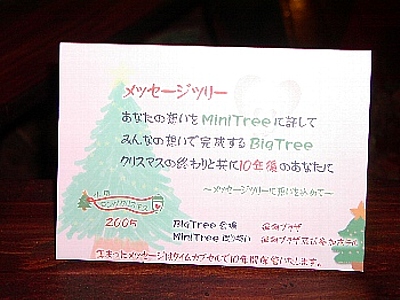 メッセージツリー
あなたの想いをMiniTreeに託して
みんなの想いで完成するBigTree
クリスマスの終わりと共に10年後のあなたに
〜メッセージツリーに想いを込めて〜
2005
BigTree 会場
MiniTree
集まったメッセージはタイムカプセルで10年間保管いたします。